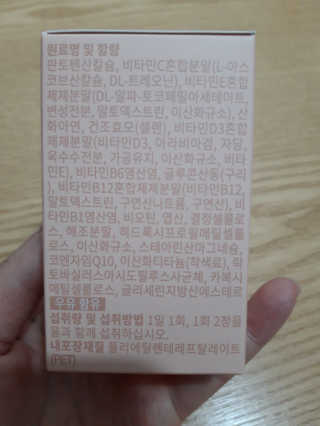 원료명 및 함량
판토텐산칼슘, 비타민C혼합분말(L-아스
코브산칼슘, DL-트레오닌), 비타민E혼합
제제분말(DL-알파-토코페릴아세테이트,
변성전분, 말토덱스트린, 이산화규소), 산
화아연, 건조효모(셀렌), 비타민D3혼합
제제분말(비타민D3, 아라비아검, 자당,
옥수수전분, 가공유지, 이산화규소, 비타
민E), 비타민B6염산염, 글루콘산동(구리
), 비타민B12혼합제제분말(비타민B12,
말토덱스트린, 구연산나트륨, 구연산), 비
타민B1염산염, 비오틴, 엽산, 결정셀룰로
스, 해조분말, 히드록시프로필메틸셀룰
로스, 이산화규소, 스테아린산마그네슘,
코엔자임Q10, 이산화티타늄(착색료), 락
토바실러스아시도필루스사균체, 카복시
메틸셀룰로스, 글리세린지방산에스테르
우유 함유
섭취량 및 섭취방법 1일 1회, 1회 2정을
물과 함께 섭취하십시오.
내포장재질 폴리에틸렌테레프탈레이트
(PET)